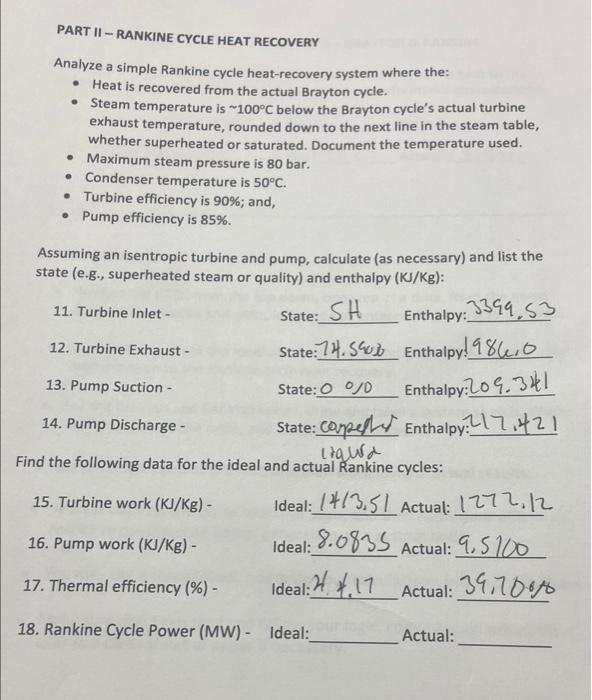 PART II – RANKINE CYCLE HEAT RECOVERY
Analyze a simple Rankine cycle heat-recovery system where the:
• Heat is recovered from the actual Brayton cycle.
• Steam temperature is ~100°C below the Brayton cycle's actual turbine
exhaust temperature, rounded down to the next line in the steam table,
whether superheated or saturated. Document the temperature used.
• Maximum steam pressure is 80 bar.
• Condenser temperature is 50°C.
• Turbine efficiency is 90%; and,
• Pump efficiency is 85%.
Assuming an isentropic turbine and pump, calculate (as necessary) and list the
state (e.g., superheated steam or quality) and enthalpy (KJ/Kg):
11. Turbine Inlet - State: SH Enthalpy: 3399.53
12. Turbine Exhaust - State: Enthalpy: 1986.0
13. Pump Suction - State: 0 % Enthalpy: 209.341
14. Pump Discharge - State: Enthalpy: 217.421
liquid
Find the following data for the ideal and actual Rankine cycles:
15. Turbine work (KJ/Kg) - Ideal: 1413.51 Actual: 1272.12
16. Pump work (KJ/Kg) - Ideal: 8.0835 Actual: 9.5100
17. Thermal efficiency (%) - Ideal: Actual: 39.70%
18. Rankine Cycle Power (MW) - Ideal: Actual: